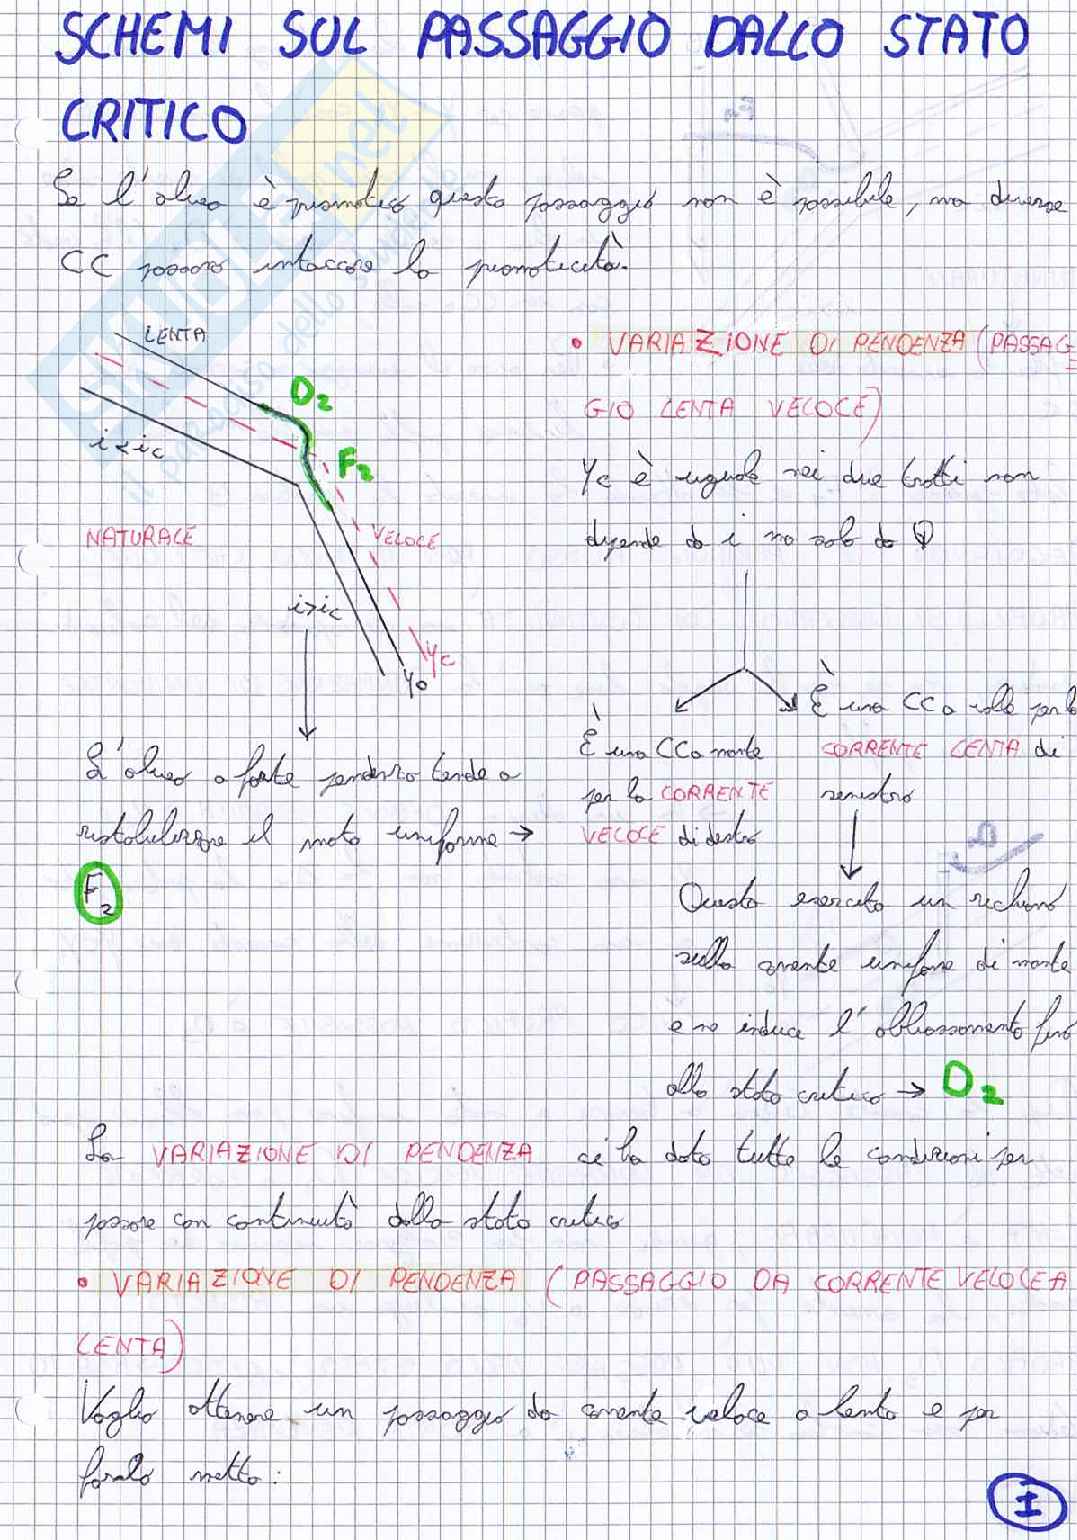 SCHEMI SUL PASSAGGIO DALLO STATO
CRITICO
Se l'alveo è prismatico questo passaggio non è possibile, ma diverse
CC possono intaccare la prismaticità.
LENTA
D2
i<ic
F2
NATURALE
VELOCE
i>ic
Yc
Y0
• VARIAZIONE DI PENDENZA (PASSAG
GIO LENTA VELOCE)
Yc è uguale nei due tratti non
dipende da i ma solo da Q
È una CC a monte
per la CORRENTE
VELOCE di destra
È una CC a valle per la
CORRENTE LENTA di
sinistra
L'alveo a forte pendenza tende a
ristabilizzare il moto uniforme →
F2
Questo esercita un richiamo
sulla corrente uniforme di monte
e ne induce l'abbassamento fino
allo stato critico → D2
La VARIAZIONE DI PENDENZA ci ha dato tutte le condizioni per
passare con continuità dallo stato critico
• VARIAZIONE DI PENDENZA (PASSAGGIO DA CORRENTE VELOCE A
LENTA)
Voglio ottenere un passaggio da corrente veloce a lenta e per
farlo metto:
I